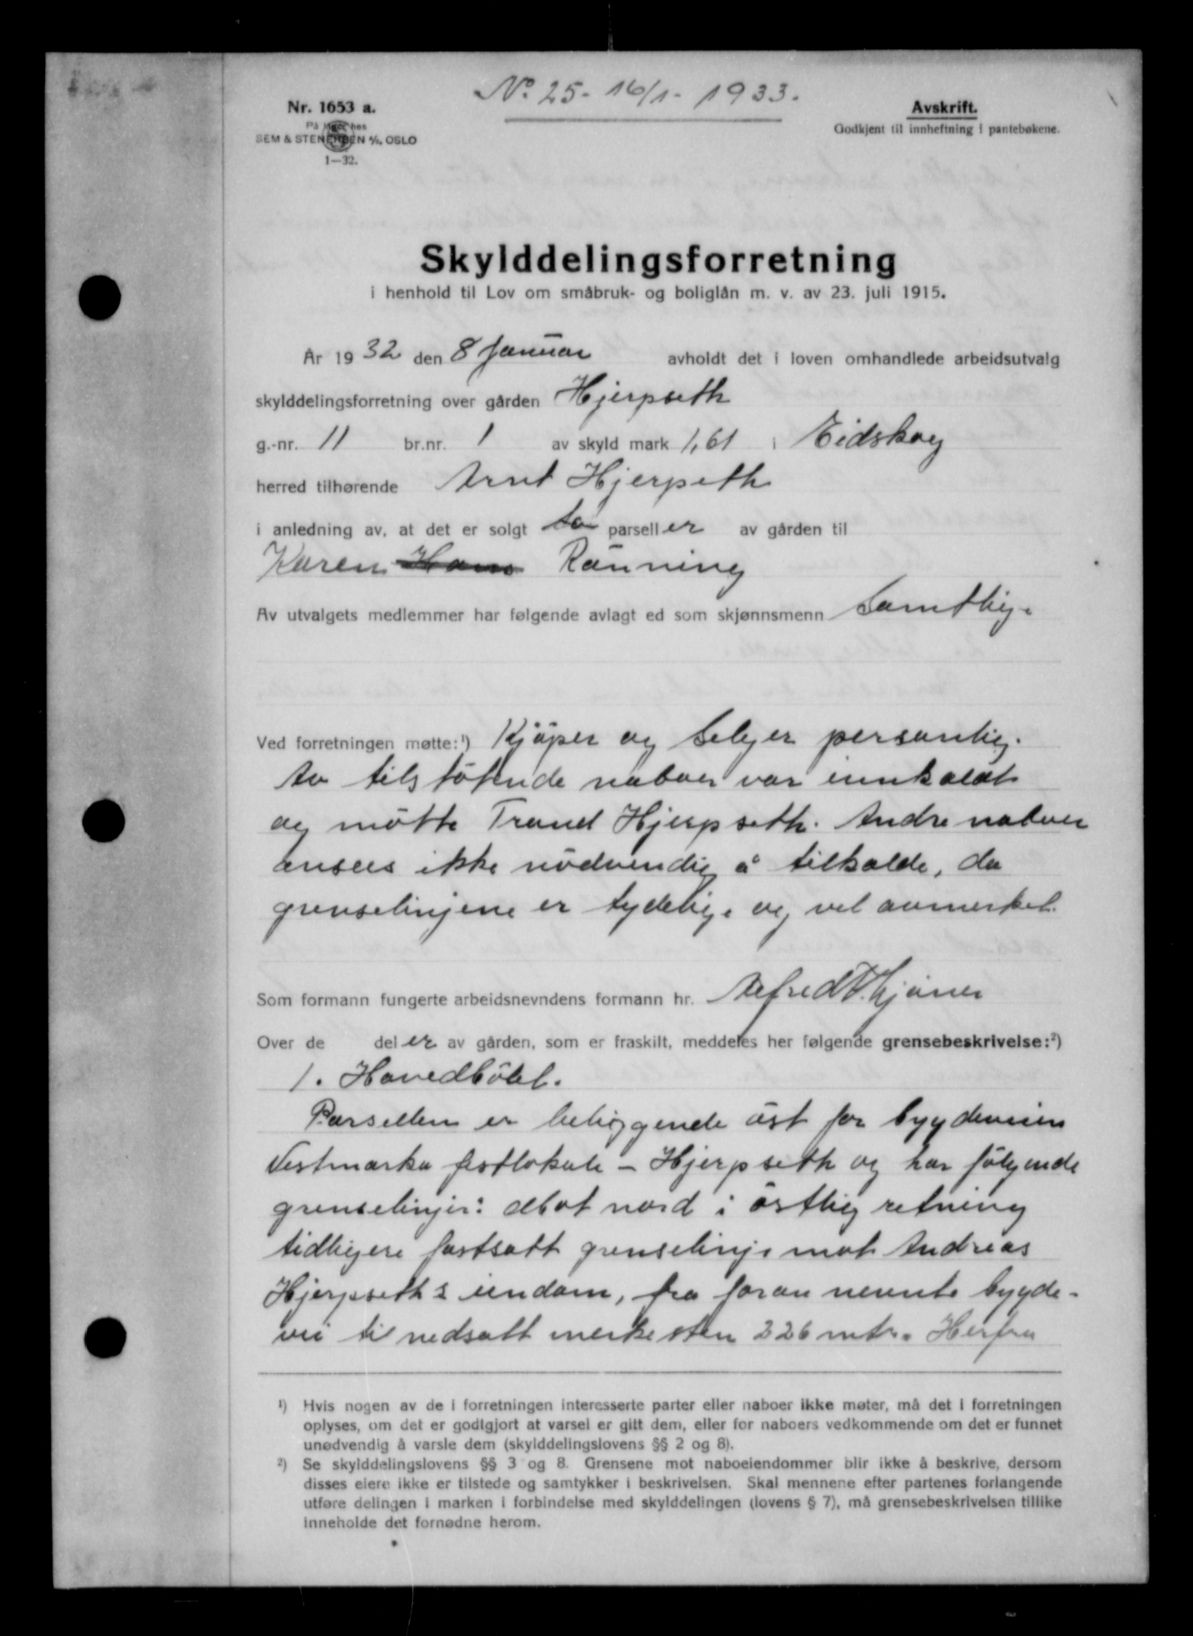 No. 25 - 16/1 - 1933.
Nr. 1653 a.
SEM & STENERSEN A/S, OSLO
1—32.
Avskrift.
Godkjent til innheftning i pantebøkene.
Skylddelingsforretning
i henhold til Lov om småbruk- og boliglån m. v. av 23. juli 1915.
År 1932 den 8 Januar avholdt det i loven omhandlede arbeidsutvalg
skylddelingsforretning over gården Hjerpseth
g.-nr. 11 br.nr. 1 av skyld mark 1,61 i Eidskog
herred tilhørende Arnt Hjerpseth
i anledning av, at det er solgt to parseller av gården til
Karen Hans Rönning
Av utvalgets medlemmer har følgende avlagt ed som skjønnsmenn Samtlige
Ved forretningen møtte:¹) Kjöper og Selger personlig.
Av tilstötende naboer var innkaldt
og mötte Trond Hjerpseth. Andre naboer
ansees ikke nödvendig å tilkalde, da
grenselinjene er tydelige og vel avmerket.
Som formann fungerte arbeidsnevndens formann hr. Alfred
Over de deler av gården, som er fraskilt, meddeles her følgende grensebeskrivelse:²)
1. Hovedbölet.
Parsellen er beliggende öst for bygdeveien
Vestmarka festlokale – Hjerpseth og har fölgende
grenselinjer: mot nord i östlig retning
tidligere fastsatt grenselinje mot Andreas
Hjerpseth's eiendom, fra foran nevnte bygde-
vei til nedsatt merkesten 226 mtr. Herfra
¹) Hvis nogen av de i forretningen interesserte parter eller naboer ikke møter, må det i forretningen
oplyses, om det er godtgjort at varsel er gitt dem, eller for naboers vedkommende om det er funnet
unødvendig å varsle dem (skylddelingslovens §§ 2 og 8).
²) Se skylddelingslovens §§ 3 og 8. Grensene mot naboeiendommer blir ikke å beskrive, dersom
disses eiere ikke er tilstede og samtykker i beskrivelsen. Skal mennene efter partenes forlangende
utføre delingen i marken i forbindelse med skylddelingen (lovens § 7), må grensebeskrivelsen tillike
inneholde det fornødne herom.